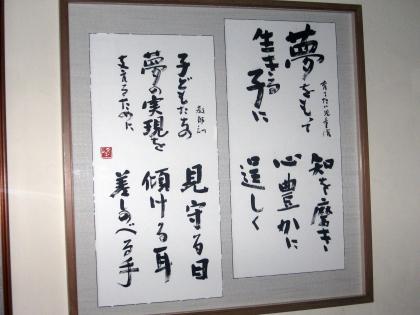 育てたい児童像
夢をもって
生きる子に
知を磨き
心豊かに
逞しく
教師は
子どもたちの
夢の実現を
支えるために
見守る目
傾ける耳
差しのべる手